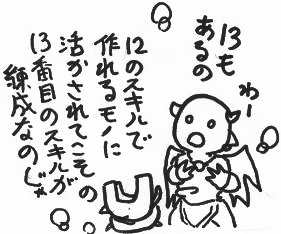 13も
あるの
わー
12のスキルで
作れるモノに
活かされてこその
13番目のスキルが
錬成なのじゃ